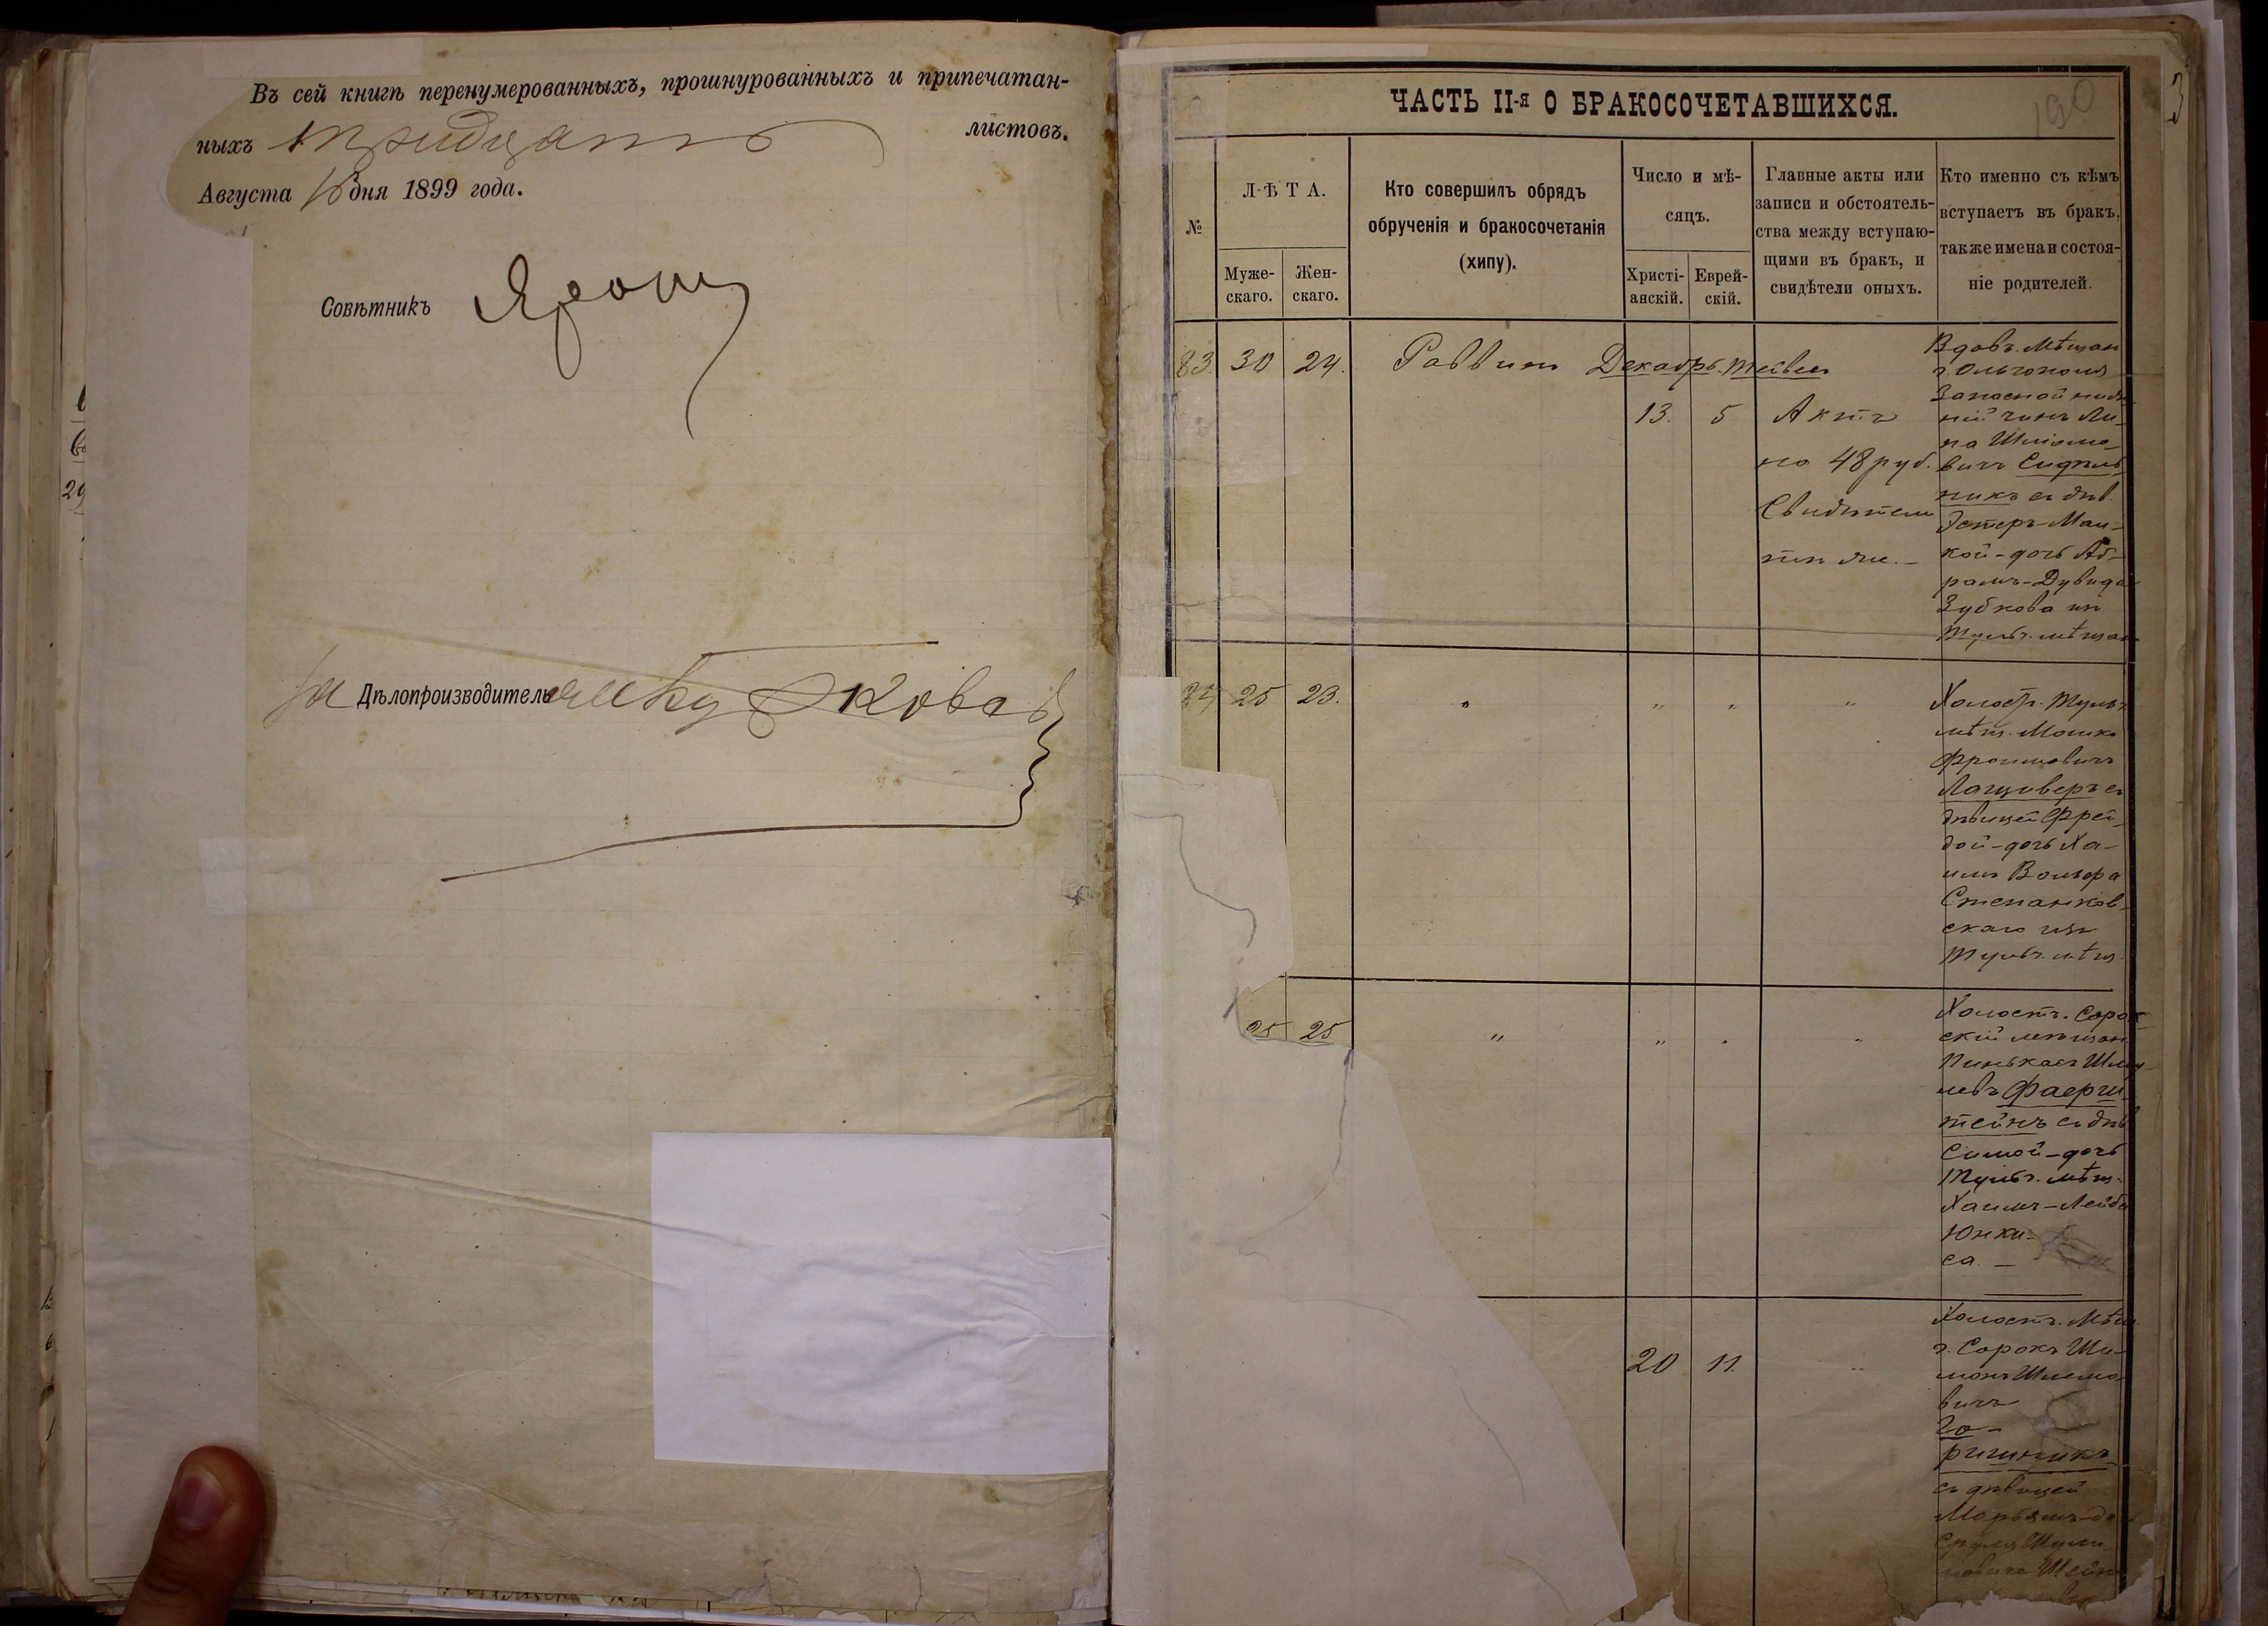 Въ сей книгѣ перенумерованныхъ, прошнурованныхъ и припечатан-
ныхъ тридцать листовъ.
Августа 16 дня 1899 года.
Совѣтникъ
Дѣлопроизводитель
ЧАСТЬ II-я О БРАКОСОЧЕТАВШИХСЯ.
190
№
ЛѢТА.
Муже-
скаго.
Жен-
скаго.
Кто совершилъ обрядъ
обрученія и бракосочетанія
(хипу).
Число и мѣ-
сяцъ.
Христі-
анскій.
Еврей-
скій.
Главные акты или
записи и обстоятель-
ства между вступаю-
щими въ бракъ, и
свидѣтели оныхъ.
Кто именно съ кѣмъ
вступаетъ въ бракъ,
также имена и состоя-
ніе родителей.
83. 30 24. Раввинъ Декабрь. Тейвеъ
13. 5 Актъ
на 48 руб.
Свидѣтели
тѣ же. —
Вдовъ. Мѣщан
г. Ольгополя
Запасной ниж
ній чинъ Ли-
па Шліомо-
вичъ Сидѣль
никъ съ дѣв.
Эстеръ-Мал-
кой-дочь Аб-
рамъ-Дувида
Зубкова изъ
Тульч. мѣщан
84 25 23. " " " "
Холост. Тульч
мѣщ. Мошко
Фроимовичъ
Лагцоверъ съ
дѣвицей Фрей-
дой-дочь Ха-
имъ Вольфа
Степанков-
скаго изъ
Тульч. мѣщ.
25 25 " " " "
Холостъ. Сорок-
скій мѣщан.
Пинькасъ Шму-
левъ Фаерш
тейнъ съ дѣв
Симой-дочь
Тульч. мѣщ.
Хаимъ-Лейба
Юнки-
са. —
20 11. "
Холостъ. Мѣщ.
г. Сорокъ Ши-
монъ Шлемо-
вичъ
Го-
ришникъ
съ дѣвицей
Марьямъ-до
Сруля Шули
мовича Шейн